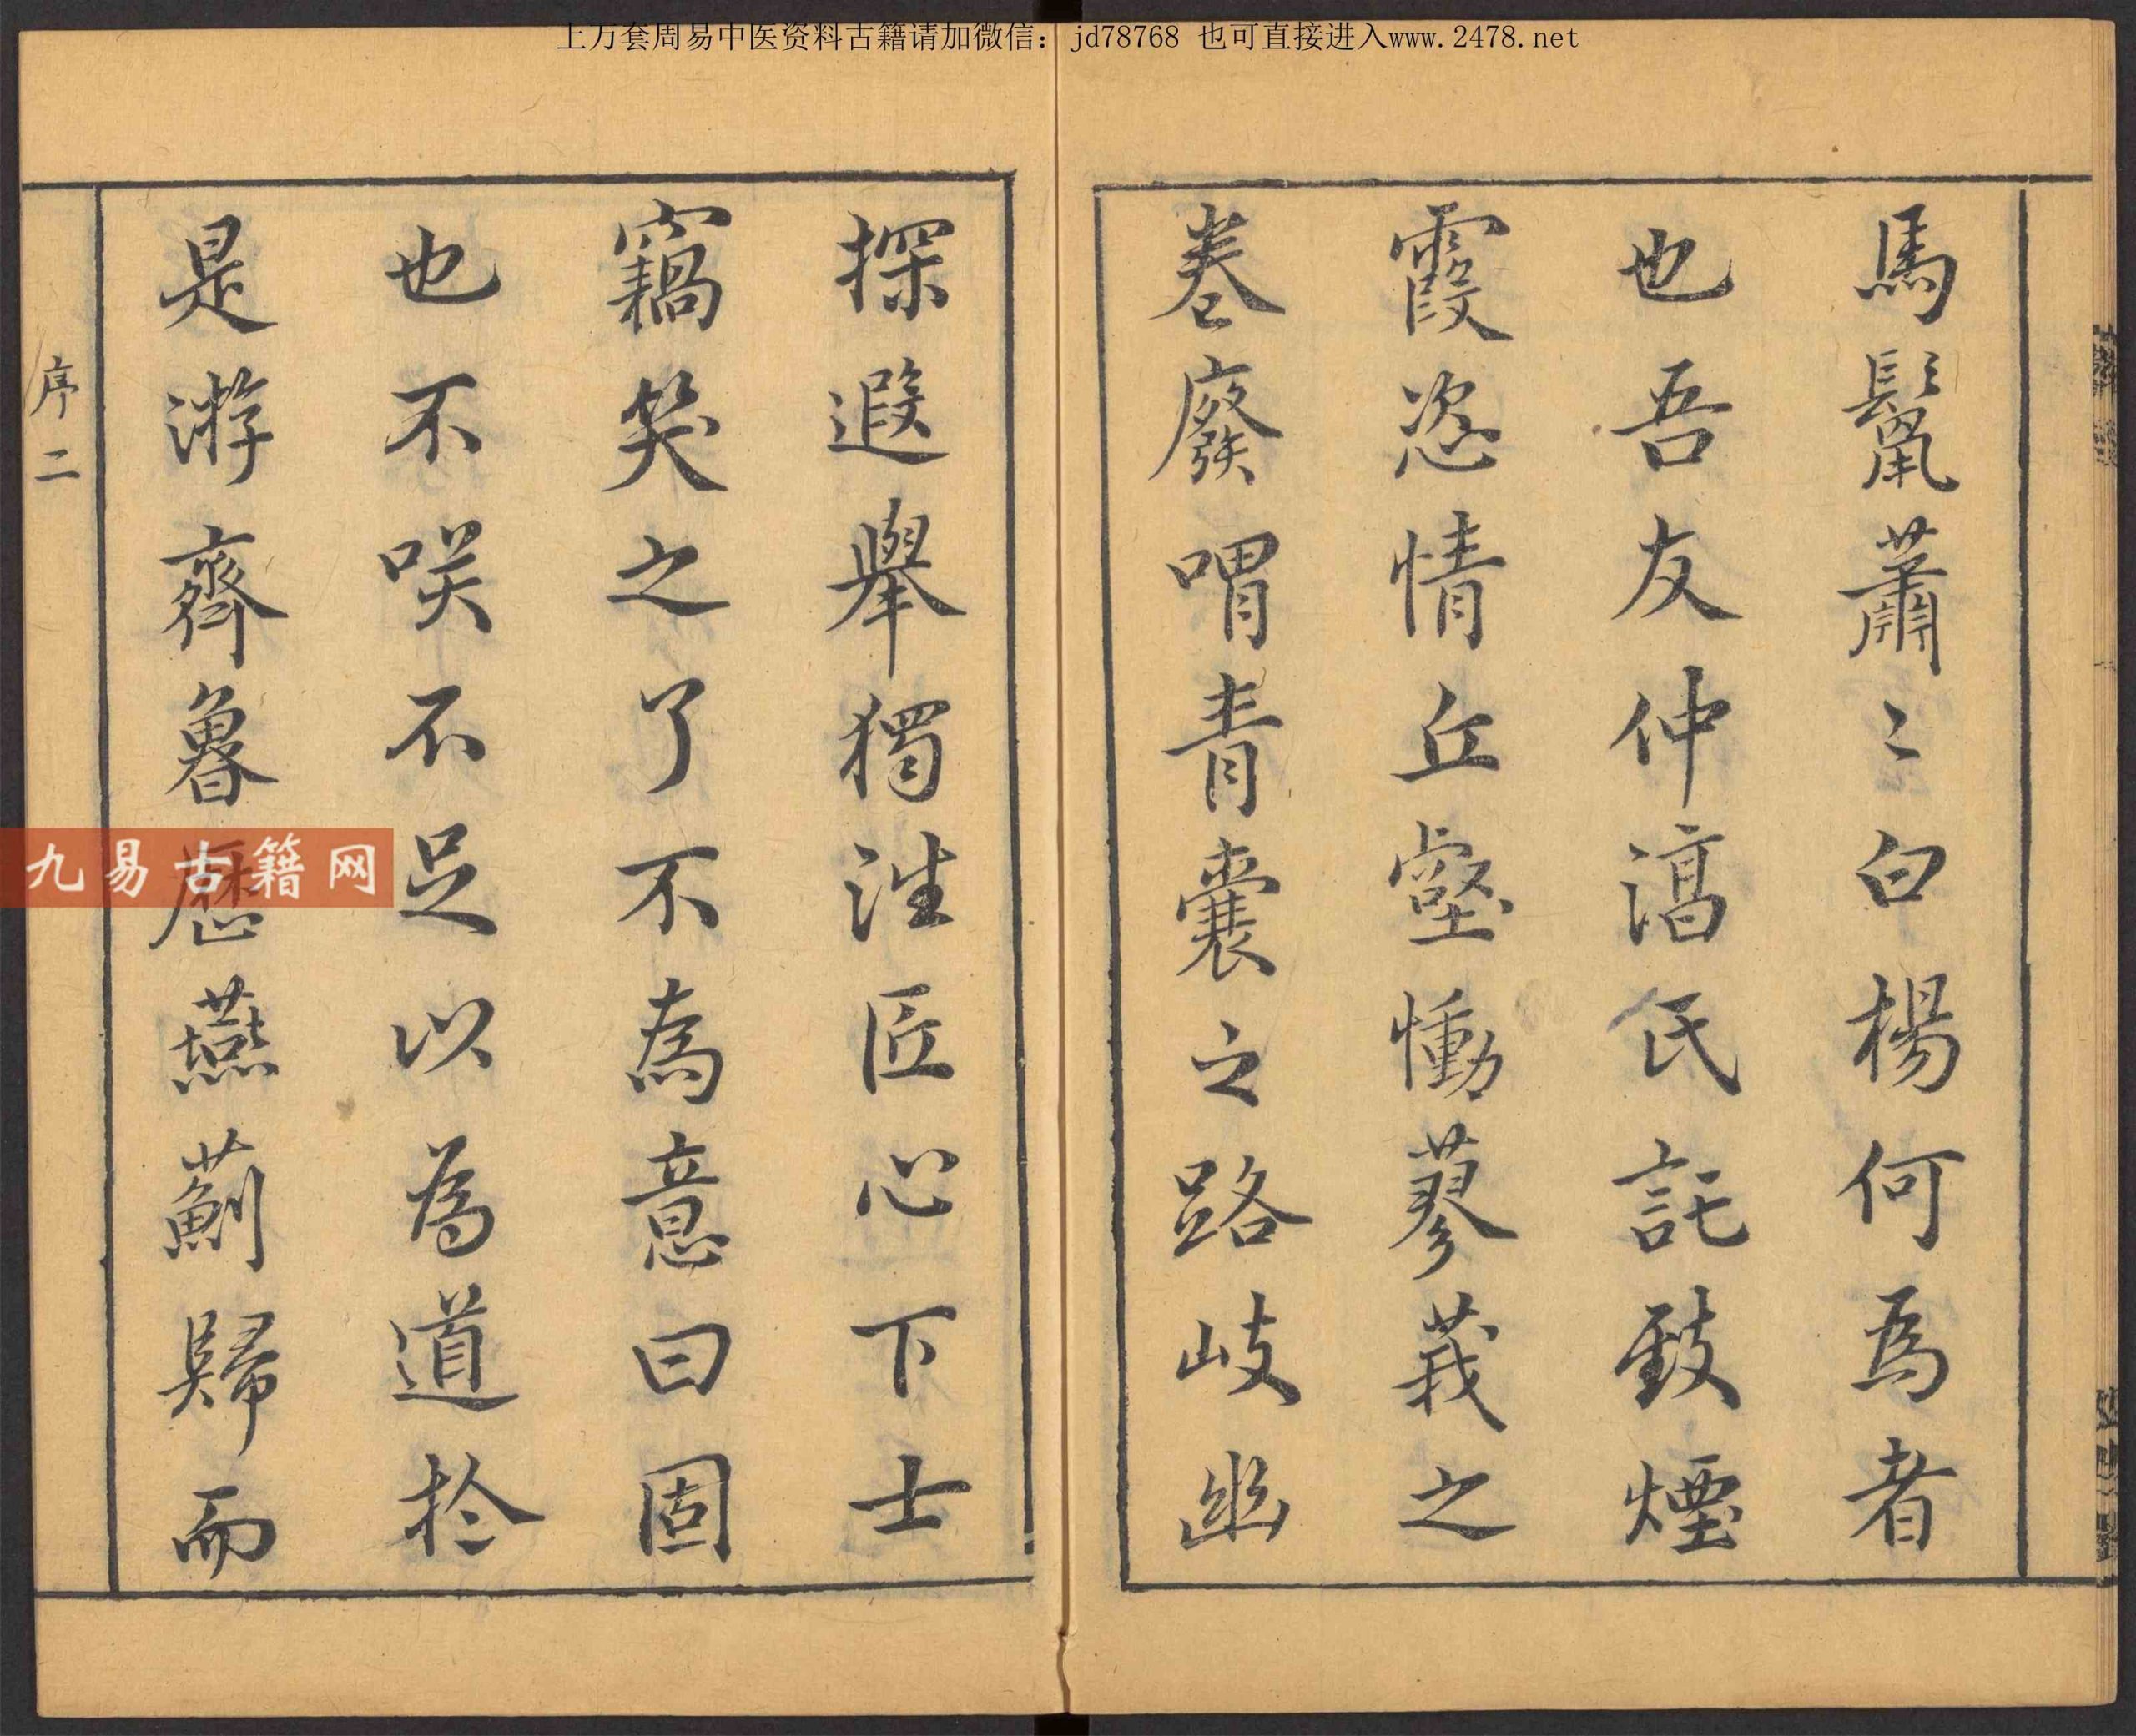 上万套周易中医资料古籍请加微信：jd78768 也可直接进入www.2478.net
馬鬣蕭〻白楊何為者
也吾友仲濄氏託致煙
霞恣情丘壑慟蓼莪之
卷廢喟青囊之路岐幽
探遐舉獨注匠心下士
竊笑之了不為意曰固
也不咲不足以為道於
是游齊魯歷燕薊歸而
序二
九易古籍网